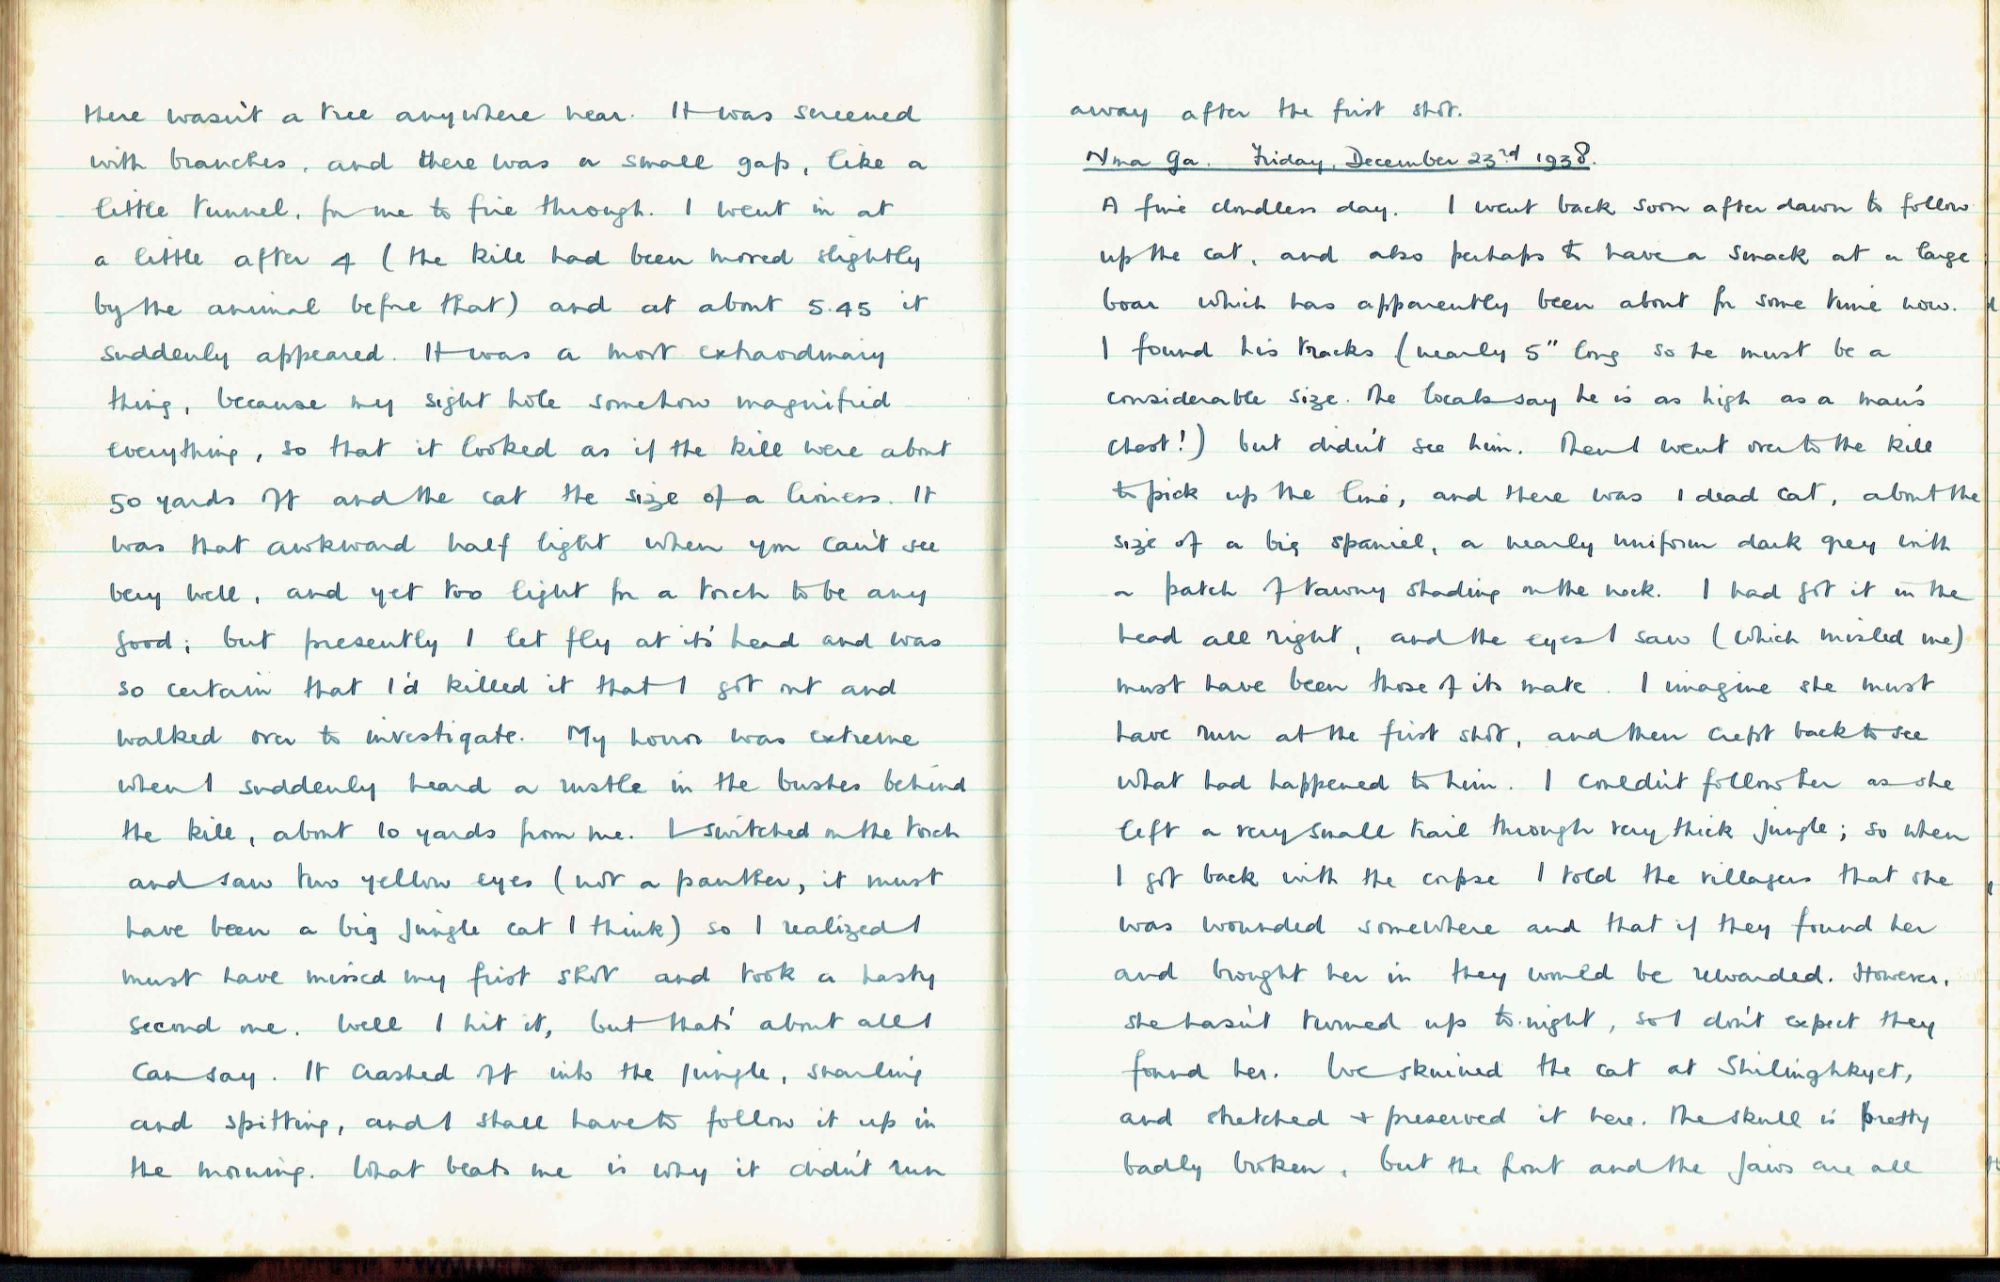 there wasn't a tree anywhere near. It was screened
with branches, and there was a small gap, like a
little tunnel, for me to fire through. I went in at
a little after 4 (the kill had been moved slightly
by the animal before that) and at about 5.45 it
suddenly appeared. It was a most extraordinary
thing, because my sight hole somehow magnified
everything, so that it looked as if the kill were about
50 yards off and the cat the size of a lioness. It
was that awkward half light when you can't see
very well, and yet too light for a torch to be any
good; but presently I let fly at its' head and was
so certain that I'd killed it that I got out and
walked over to investigate. My horror was extreme
when I suddenly heard a rustle in the bushes behind
the kill, about 10 yards from me. I switched on the torch
and saw two yellow eyes (not a panther, it must
have been a big jungle cat I think) so I realized I
must have missed my first shot and took a hasty
second one. Well I hit it, but that's about all I
can say. It crashed off into the jungle, snarling
and spitting, and I shall have to follow it up in
the morning. What beats me is why it didn't run
away after the first shot.
Nma Ga. Friday, December 23rd 1938.
A fine cloudless day. I went back soon after dawn to follow
up the cat, and also perhaps to have a smack at a large
boar which has apparently been about for some time now.
I found his tracks (nearly 5" long so he must be a
considerable size. The locals say he is as high as a man's
chest!) but didn't see him. Then I went over to the kill
to pick up the line, and there was 1 dead cat, about the
size of a big spaniel, a nearly uniform dark grey with
a patch of tawny shading on the neck. I had got it in the
head all right, and the eyes I saw (which misled me)
must have been those of its mate. I imagine she must
have run at the first shot, and then crept back to see
what had happened to him. I couldn't follow her as she
left a very small trail through very thick jungle; so when
I got back with the corpse I told the villagers that she
was wounded somewhere and that if they found her
and brought her in they would be rewarded. However,
she hasn't turned up to-night, so I don't expect they
found her. We skinned the cat at Shilinghkyet,
and stretched + preserved it here. The skull is pretty
badly broken, but the front and the jaws are all